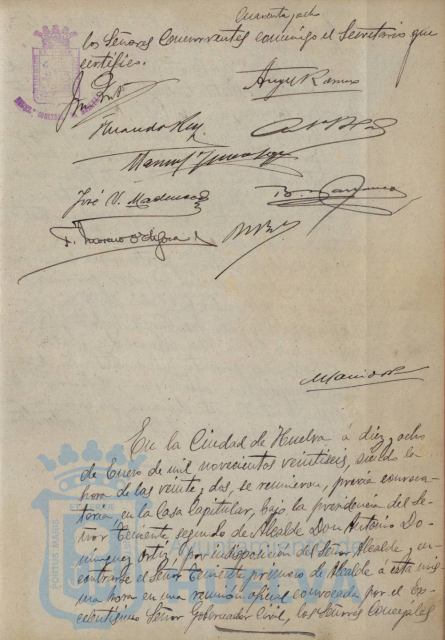 Cuarenta y ocho
los Señores Concurrentes conmigo el Secretario que
certifico.
Angel Ramos
Fernando Rey
Manuel
José V.
F. Moreno
En la Ciudad de Huelva á diez y ocho
de Enero de mil novecientos veintiseis, siendo la
hora de las veinte y dos, se reunieron, previa convoca-
toria, en la Casa Capitular, bajo la presidencia del Se-
ñor Teniente segundo de Alcalde Don Antonio Do-
minguez Ortiz por indisposicion del Señor Alcalde y en-
contrarse el Señor Teniente primero de Alcalde á esta mis-
ma hora en una reunion oficial convocada por el Ex-
celentísimo Señor Gobernador Civil, los Señores Concejales
PORTUS MARIS